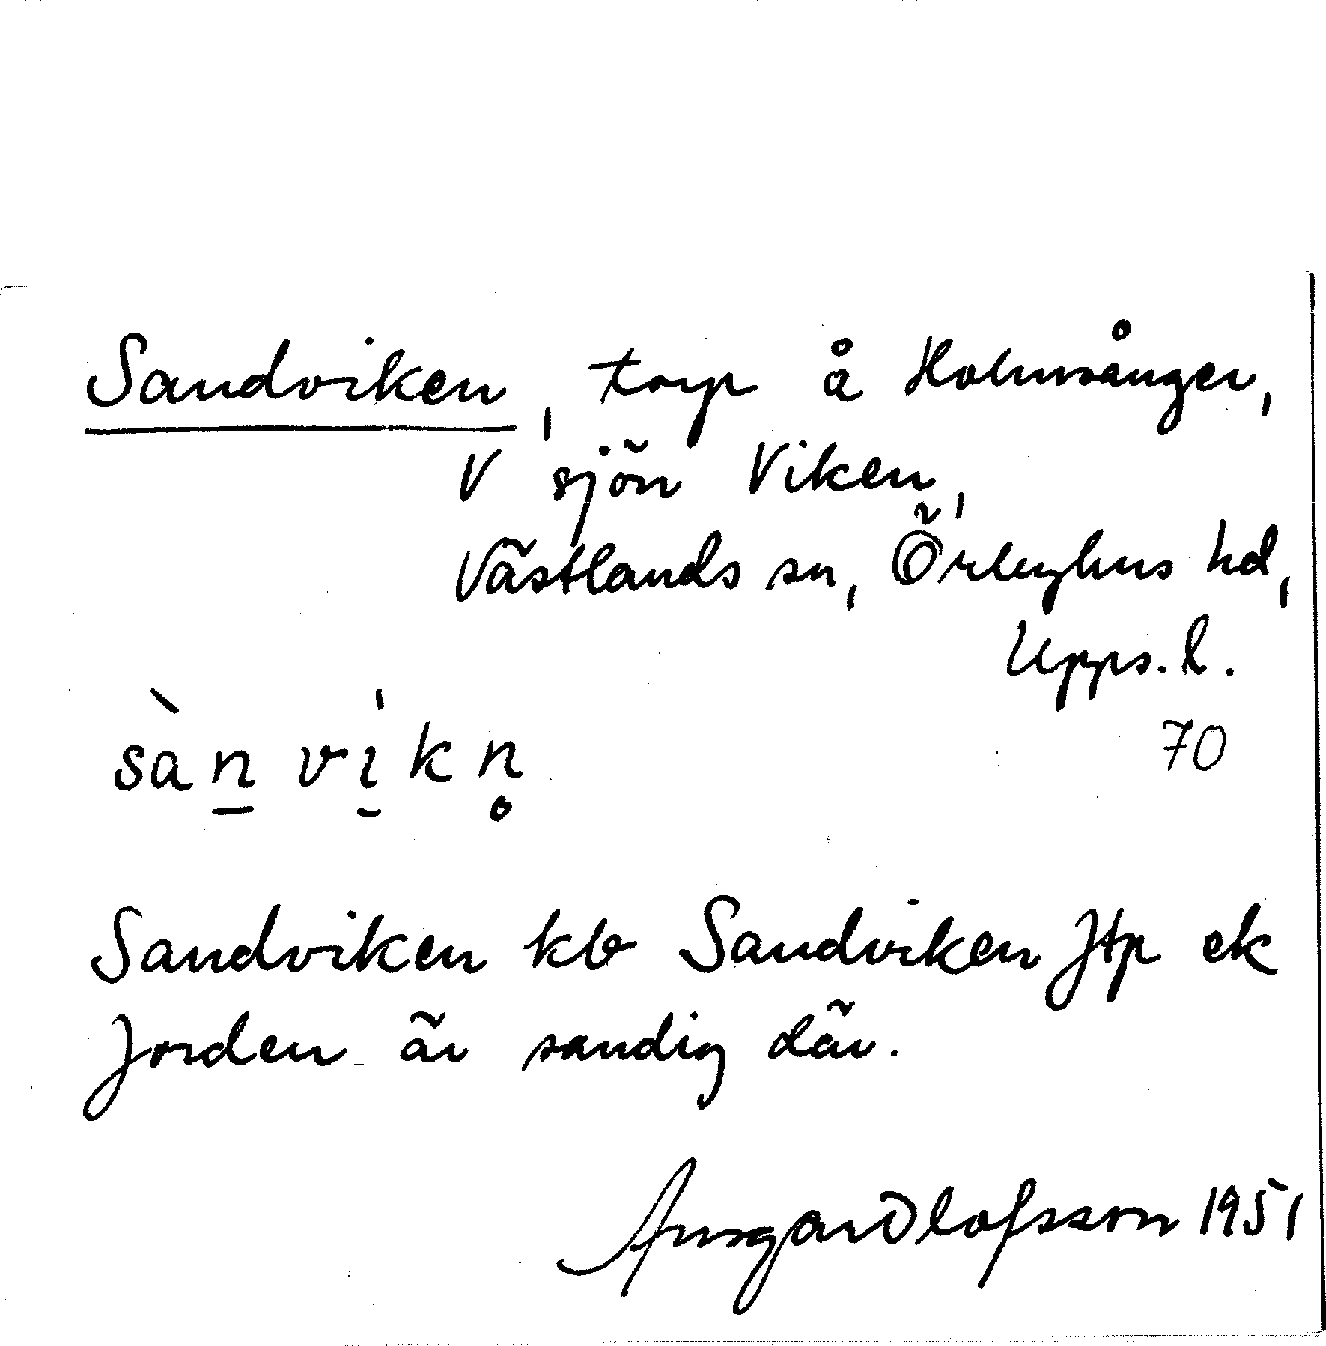 Sandviken, torp å Holmsånger,
V sjön Viken,
Västlands sn, Örbyhus hd,
Upps. l.
70
sàn vik n̥
Sandviken kb Sandviken Jtp ek
Jorden är sandig där.
Ansgar Olofsson 1951